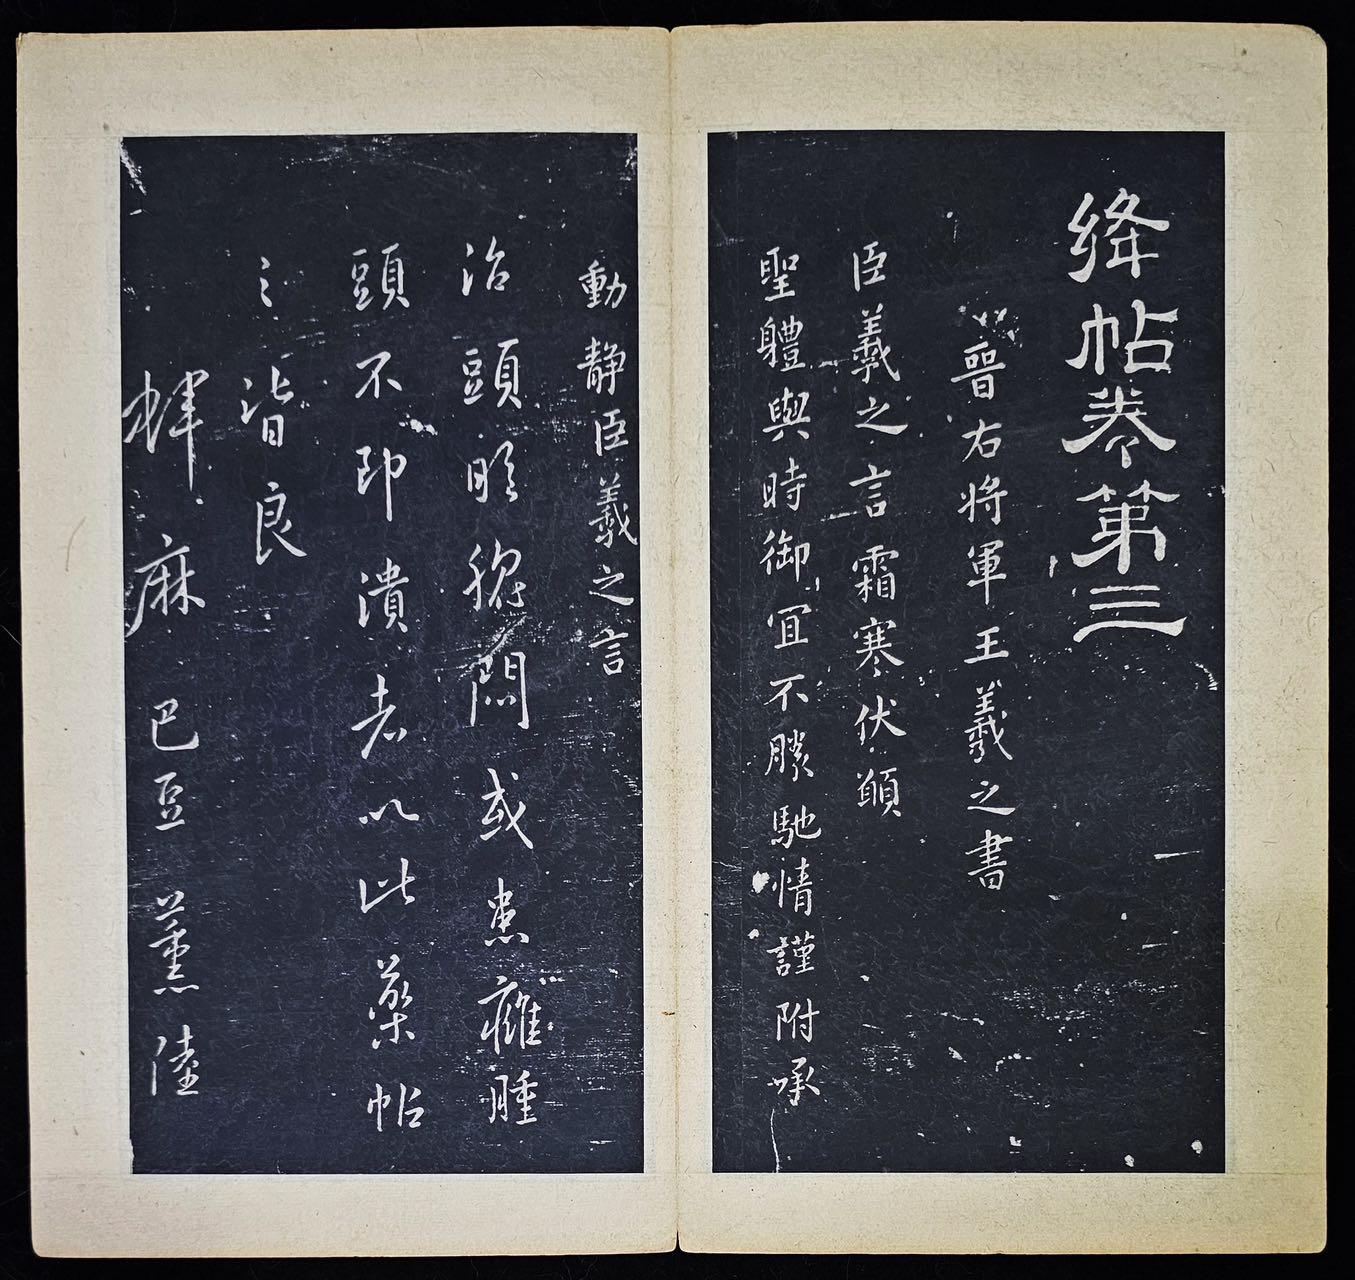 絳帖卷第三
晉右將軍王羲之書
臣羲之言霜寒伏願
聖體與時御宜不勝馳情謹附承
動靜臣羲之言
治頭眩腦悶或患癰腫
頭不即潰者以此藥帖
之皆良
麻巴豆薰陸